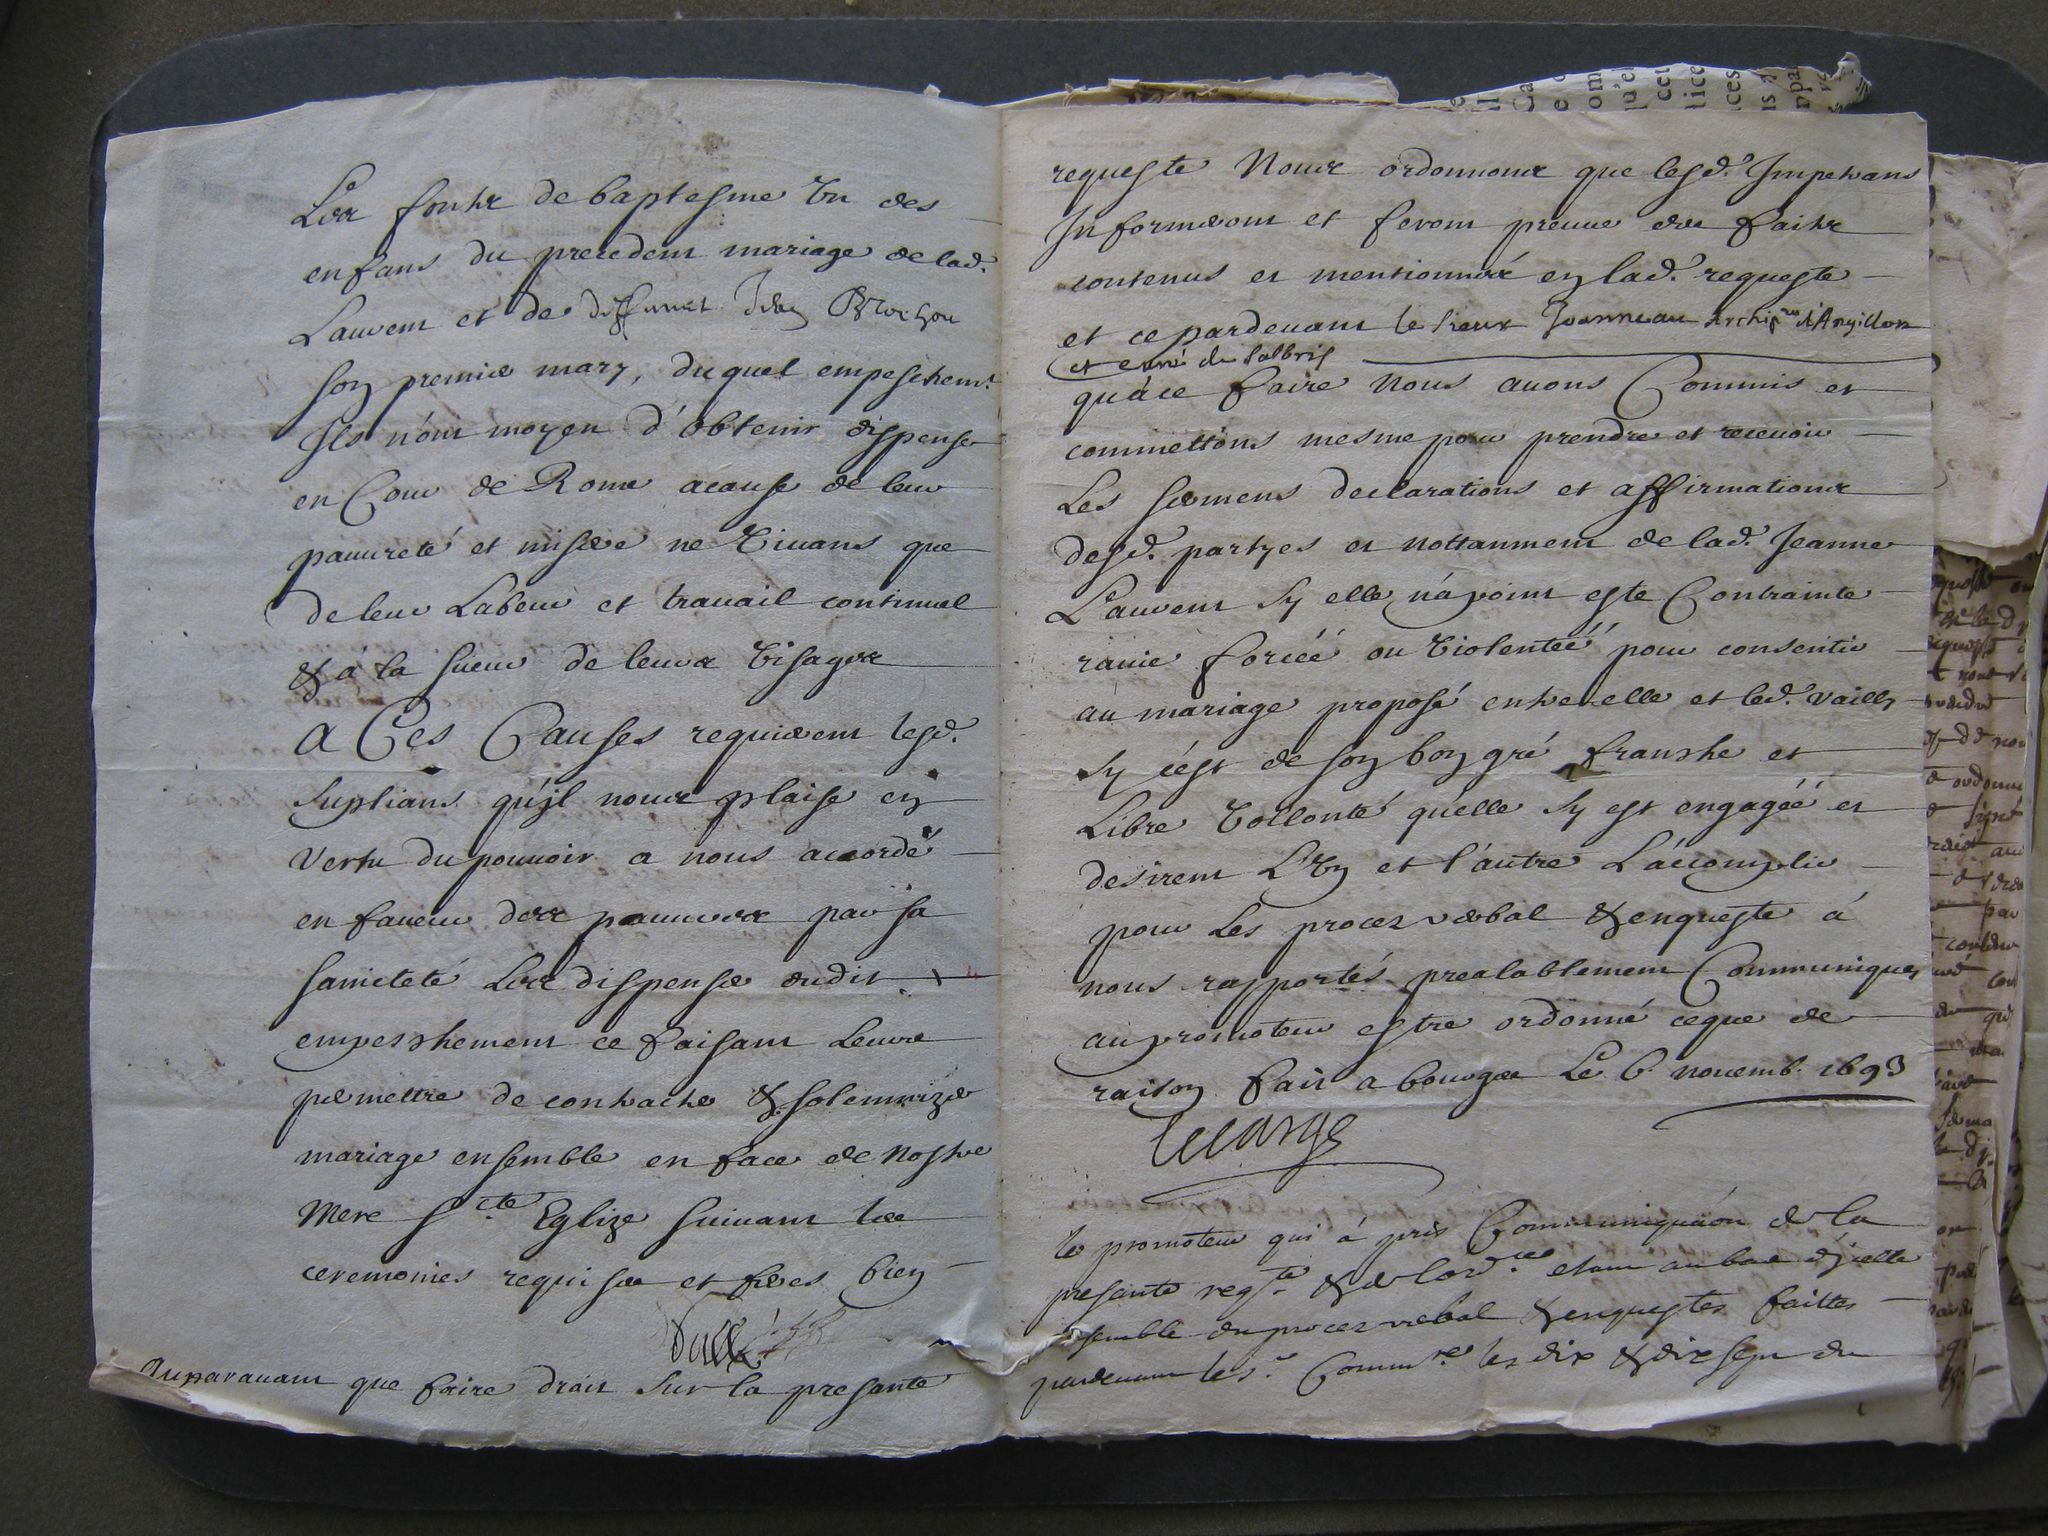 Les fonts de baptesme Un des
enfans du precedent mariage de lad.
Lauvent et de deffunct Jean Brochon
son premier mary, duquel empeschemt.
Ils n'ont moyen d'obtenir dispense
en Cour de Rome a cause de leur
pauureté et misere ne Viuans que
de leur Labeur et trauail continuel
& á la sueur de leurs Visages
A Ces Causes requierent lesd.
Suplians qu'jl nous plaise en
Vertu du pouuoir a nous accordé
en faueur des pauures par sa
saincteté Les dispenser dudit
empeschement ce faisant Leurs
permettre de contracter & solemnizer
mariage ensemble en face de Nostre
Mere Ste Eglize suiuant les
ceremonies requises et feres bien
Auparauant que faire droit sur la presante
requeste Nous ordonnons que lesd. Impetrans
Informeront et feront preuue des faits
contenus et mentionnés en lad. requeste
et ce pardeuant le sieur Joanneau Archip.re d'Angillon
et curé de Salbris
qu'à ce faire Nous auons Commis et
commettons mesme pour prendre et receuoir
Les sermens declarations et affirmations
desd. partyes et nottamment de lad. Jeanne
Lauvent sy elle n'a point esté Contrainte
rauie forcéé ou Violentéé pour consentir
au mariage proposé entre elle et led. Vailly
sy c'est de son bon gré franche et
Libre Vollonté qu'elle sy est engagéé et
desirent L'Un et l'autre L'accomplir
pour Les procez verbal & enqueste á
nous rapportés prealablement Communiquez
au promoteur estre ordonné ce que de
raison fait a bourges Le 6. nouemb. 1693
le promoteur qui á pris Communiquáon de la
presante reqte. & de l'ord.ce estant au bas d'jcelle
ensemble du procez verbal & enquestes faittes
pardeuant le sr. Comm.re les dix & dix sept du